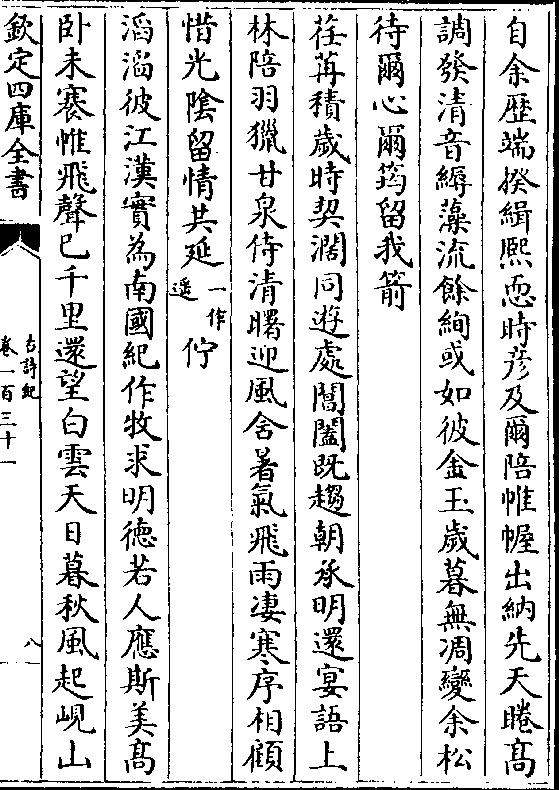 自余歴端揆緝熙忝時彦及爾陪帷幄出納先天睠髙
調發清音縟藻流餘絢或如彼金玉歲暮無凋變余松
待爾心爾筠留我箭
荏苒積歲時契濶同遊處閶闔既趨朝承明還宴語上
林陪羽獵甘泉侍清曙迎風舍暑氣飛雨凄寒序相顧
惜光陰留情共延一作遥佇
滔滔彼江漢實為南國紀作牧求明德若人應斯美髙
卧未褰帷飛聲已千里還望白雲天日暮秋風起峴山
欽定四庫全書
古詩紀
卷一百三十一
八